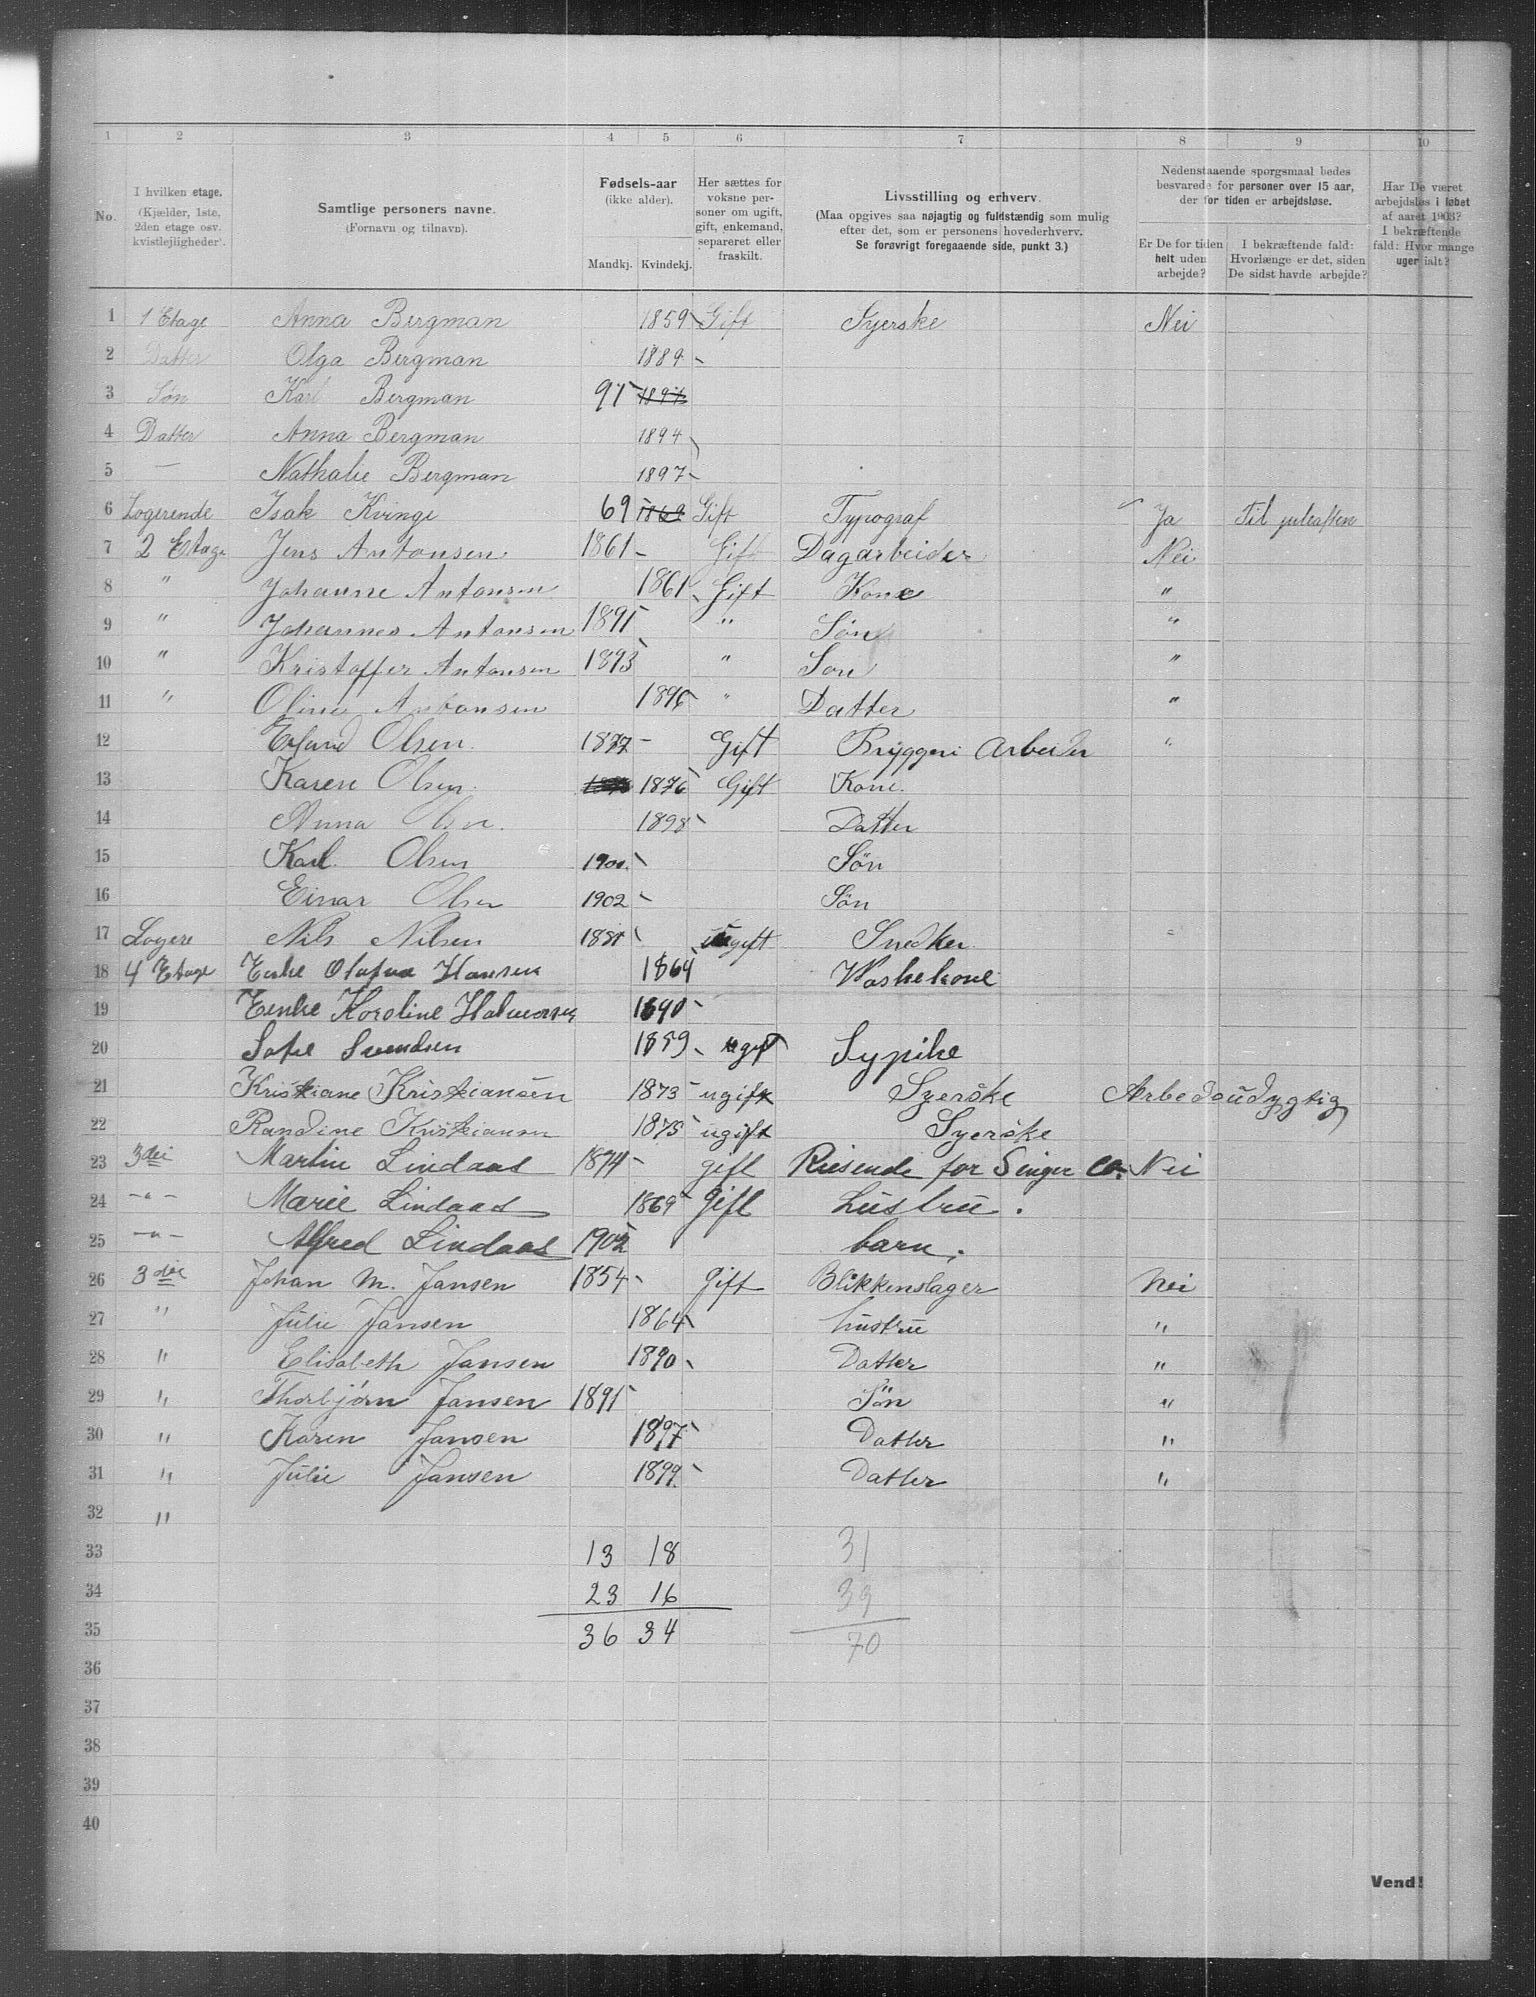 1 2 3 4 5 6 7 8 9 10
No.
I hvilken etage.
(Kjælder, 1ste,
2den etage osv.
kvistlejligheder).
Samtlige personers navne.
(Fornavn og tilnavn).
Fødsels-aar
(ikke alder).
Mandkj. Kvindekj.
Her sættes for
voksne per-
soner om ugift,
gift, enkemand,
separeret eller
fraskilt.
Livsstilling og erhverv.
(Maa opgives saa nøjagtig og fuldstændig som mulig
efter det, som er personens hovederhverv.
Se forøvrigt foregaaende side, punkt 3.)
Nedenstaaende spørgsmaal bedes
besvarede for personer over 15 aar,
der for tiden er arbejdsløse.
Er De for tiden
helt uden
arbejde?
I bekræftende fald:
Hvorlænge er det, siden
De sidst havde arbejde?
Har De været
arbejdsløs i løbet
af aaret 1903?
I bekræftende
fald: Hvor mange
uger ialt?
1 1 Etage Anna Bergman 1859 Gift Syerske Nei
2 Datter Olga Bergman 1889
3 Søn Karl Bergman 91
4 Datter Anna Bergman 1894
5 — Nathalie Bergman 1897
6 Logerende Isak Kvinge 69 1869 Gift Typograf Ja Til juleaften
7 2 Etage Jens Antonsen 1861 Gift Dagarbeider Nei
8 " Johanne Antonsen 1861 Gift Kone "
9 " Johannes Antonsen 1891 " Søn "
10 " Kristoffer Antonsen 1893 " Son "
11 " Oline Antonsen 1896 " Datter "
12 Erland Olsen 1877 Gift Bryggeri Arbeider "
13 Karen Olsen 1876 Gift Kone.
14 Anna Olsen. 1898 Datter
15 Karl Olsen 1900 Søn
16 Einar Olsen 1902 Søn
17 Logere Nils Nilsen 1881 ugift Snedker "
18 4 Etage Enke Olafna Hansen 1864 Vaskekone
19 Enke Karoline Halvorsen 1890
20 Sofie Svendsen 1859 ugift Sypike
21 Kristiane Kristiansen 1873 ugift Syerske Arbedsudygtig
22 Randine Kristiansen 1875 ugift Syerske
23 3die Martin Lindaas 1874 gift Reisende for Singer Co. Nei
24 -"- Marie Lindaas 1869 Gift Hustru.
25 -"- Alfred Lindaas 1902 barn.
26 3die Johan M. Jansen 1854 Gift Blikkenslager Nei
27 " Julie Jansen 1864 hustru "
28 " Elisabeth Jansen 1890 Datter "
29 " Thorbjørn Jansen 1891 Søn "
30 " Karen Jansen 1897 Datter "
31 " Julie Jansen 1899 Datter "
32 "
33 13 18 31
34 23 16 39
35 36 34 70
36
37
38
39
40
Vend!